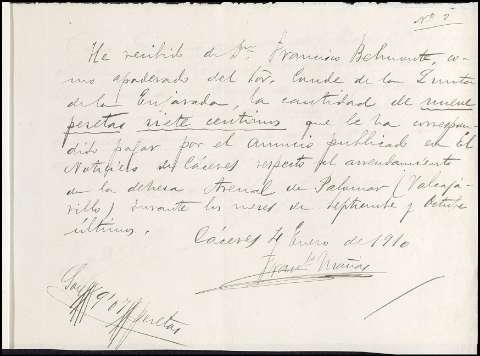 Nº 2
He recibido de Dn. Francisco Belmonte, co-
mo apoderado del Sor. Conde de la Quinta
de la Enjarada, la cantidad de nueve
pesetas siete centimos que le ha correspon-
dido pagar por el anuncio publicado en El
Noticiero de Cáceres respecto al arrendamiento
de la dehesa Arenal de Palomar (Valcajá-
rillo) durante los meses de septiembre y octubre
últimos.
Cáceres 4 Enero de 1910
Son 9'07 pesetas